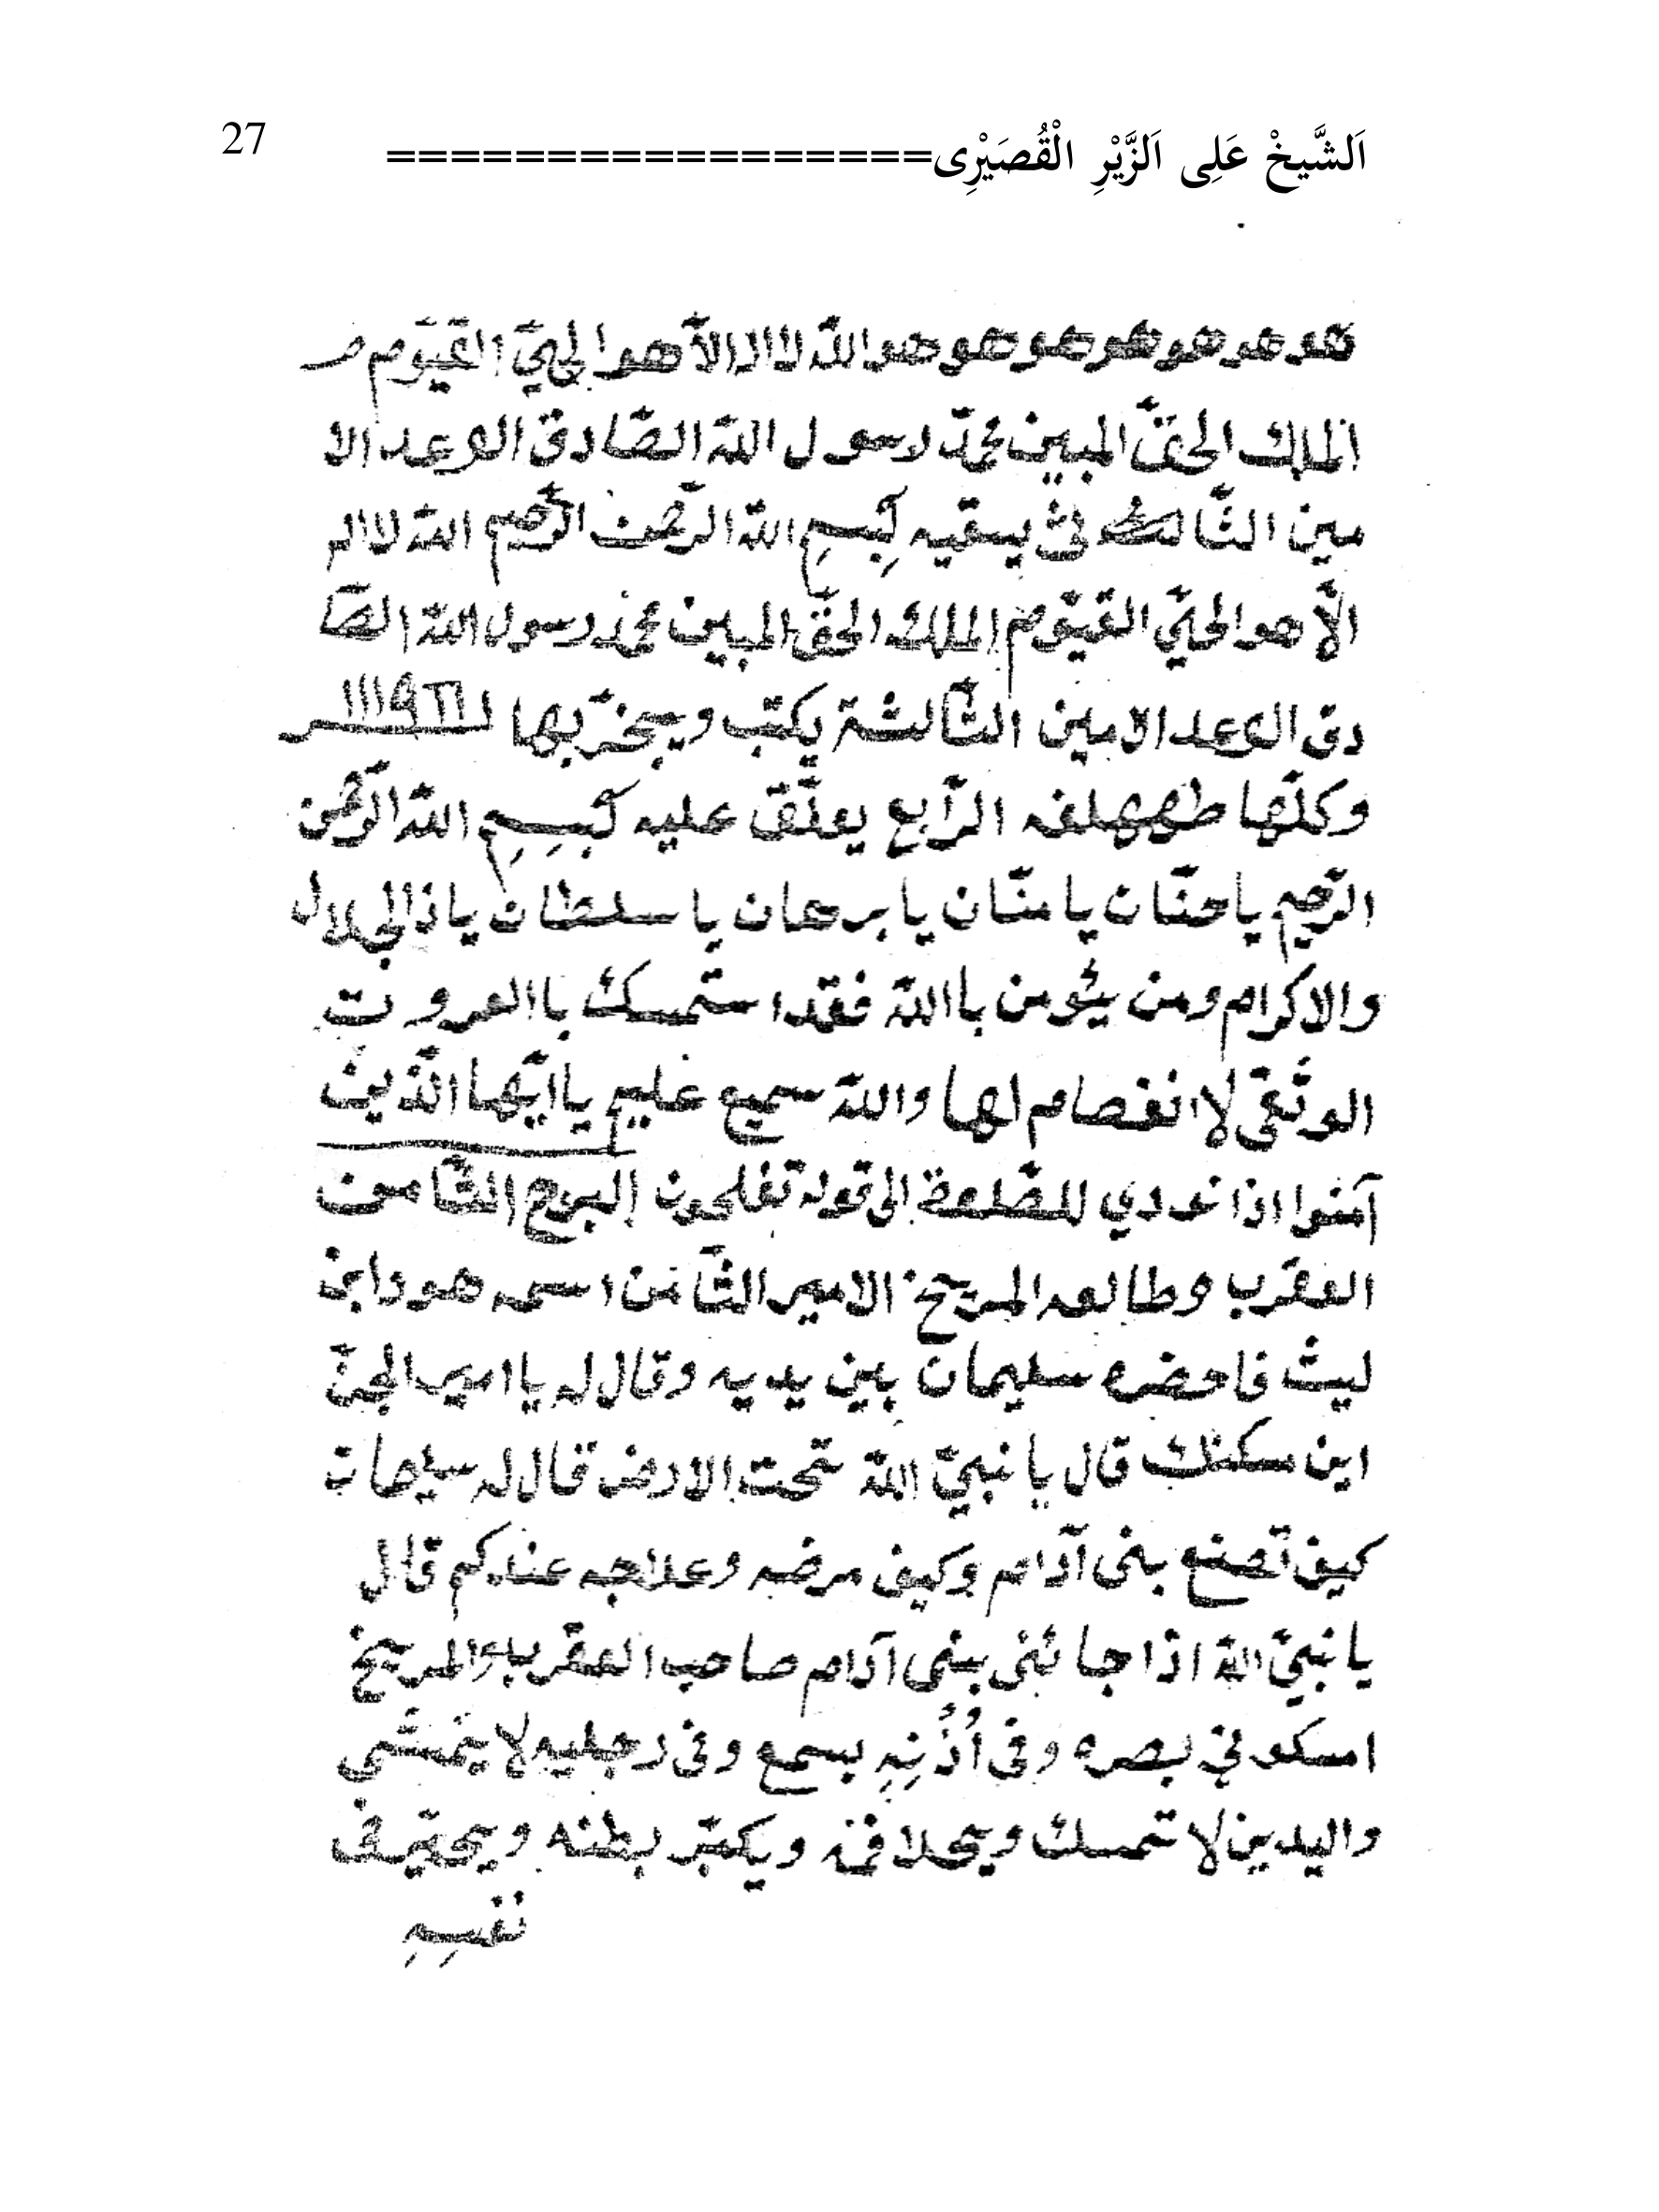 اَلشَّيخْ عَلِى اَلزَّيْرِ الْقُصَيْرِى================= 27
هو هو هو هو هو هو هو الله لا اله الّا هو الحيّ القيّوم
الملك الحقّ المبين محمّد رسول الله الصّادق الوعد الا
مين الثّا يسقيه بِسمِ الله الرّحمن الرّحيم الله لا اله
الّا هو الحيّ القيّوم الملك الحقّ المبين محمّد رسول الله الصّا
دق الوعد الامين الثّالثة يكتب ويبخّر بها
وكلّها الرّابع يعلّق عليه بِسمِ الله الرّحمن
الرّحيم يا حنّان يا منّان يا برهان يا سلطان يا ذالجلال
والاكرام ومن يؤمن با الله فقد استمسك با العروت
الوثقى لا انفصام لها والله سميع عليم يا ايّها الّذين
آمنوا اذا نودي للصّلوة الى قوله تفلحون البرج الثّامن
العقرب وطالعه المريخ الامير الثّامن اسمه هو دابن
ليث فاحضره سليمان بين يديه وقال له يا امير الجنّ
اين سكنك قال يا نبيّ الله تحت الارض قال له سليمان
كيف تصنع بنى آدام وكيف مرضه وعلاجه عندكم قال
يا نبيّ الله اذا جائنى بنى آدام صاحب العقرب والمريخ
اسكو في بصره وفى أُذُنِهِ يسمع وفى رجليه لا يتمشي
واليدين لا تمسك ويحلا فمّه ويكبّر بطنه ويحيّر فى
نفسِهِ